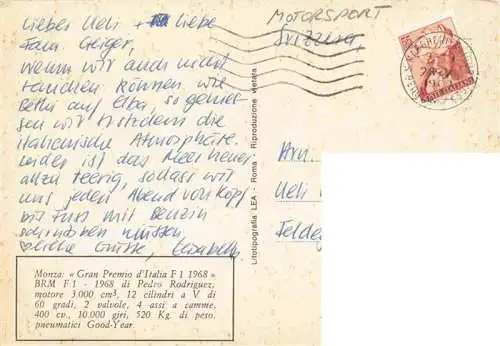 Lieber Ueli + liebe
Fam. Geiger,
wenn wir auch nicht
tauchen können wie
Bethli auf Elba, so genies-
sen wir trotzdem die
italienische Atmosphäre.
Leider ist das Meer heuer
allzu teerig, sodass wir
uns jeden Abend von Kopf
bis Fuss mit Benzin
schrubben müssen
Liebe Grüsse, Elisabeth
Monza: « Gran Premio d'Italia F 1 1968 »
BRM F 1 - 1968 di Pedro Rodriguez,
motore 3.000 cm³, 12 cilindri a V di
60 gradi, 2 valvole, 4 assi a camme,
400 cv., 10.000 giri, 520 Kg. di peso,
pneumatici Good-Year.
Litotipografia LEA - Roma - Riproduzione vietata
MOTORSPORT
Svizzera
Hrn.
Ueli